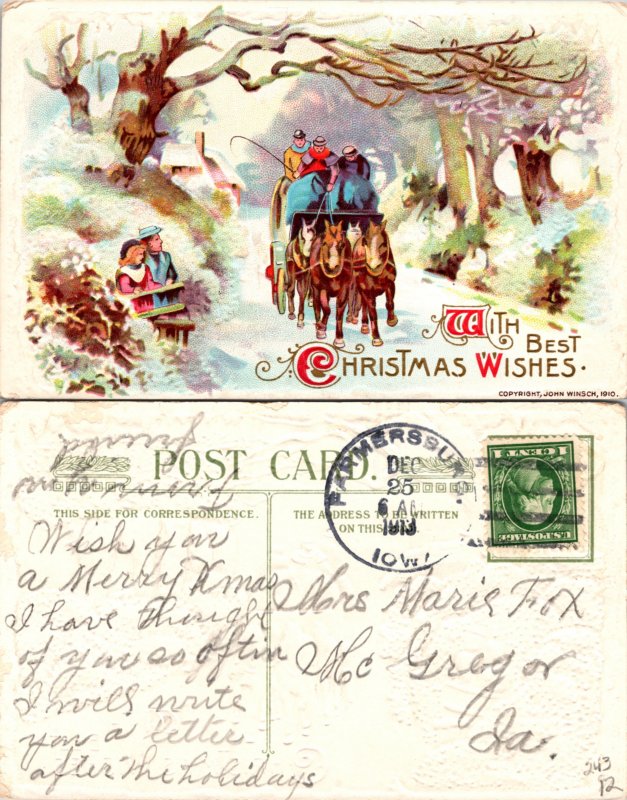 With Best
Christmas Wishes.
COPYRIGHT, JOHN WINSCH, 1910.
POST CARD.
THIS SIDE FOR CORRESPONDENCE.
THE ADDRESS TO BE WRITTEN
ON THIS
FARMERSBURG
DEC
25
6 AM
1913
IOWA
1 CENT 1
U.S. POSTAGE
Wish you
a Merry Xmas
I have thought
of you so often
I will write
you a letter
after the holidays
From your
friend
Mrs Marie Fox
Mc Gregor
Ia.
243
12